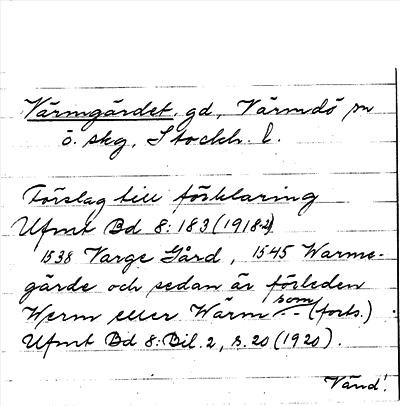 Värmgärdet, gd, Värmdö sn
ö. skg, Stockh. l.
Förslag till förklaring
Ufmt Bd 8:183 (1918-2)
1538 Varge Gård, 1545 Warme-
gärde och sedan är förleden
Werm eller Wärm- som (forts.)
Ufmt Bd 8: Bil. 2, s. 20 (1920).
Vänd!